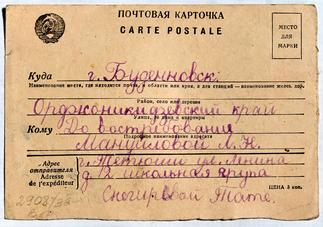 ПОЧТОВАЯ КАРТОЧКА
CARTE POSTALE
МЕСТО
ДЛЯ
МАРКИ
Куда г. Буденновск
Наименование места, где находится почта, и области или края, а для станций — наименование желез. дор.
Орджоникидзевский край
Район, село или деревня
Улица, № дома и квартиры
Кому До востребования
Подробное наименование адресата
Мануиловой Л. Н.
Адрес отправителя
Adresse de l'expéditeur
г. Тетюши ул. Ленина
д 12 школьная група
ЦЕНА 5 коп.
Снегиревой Тате.